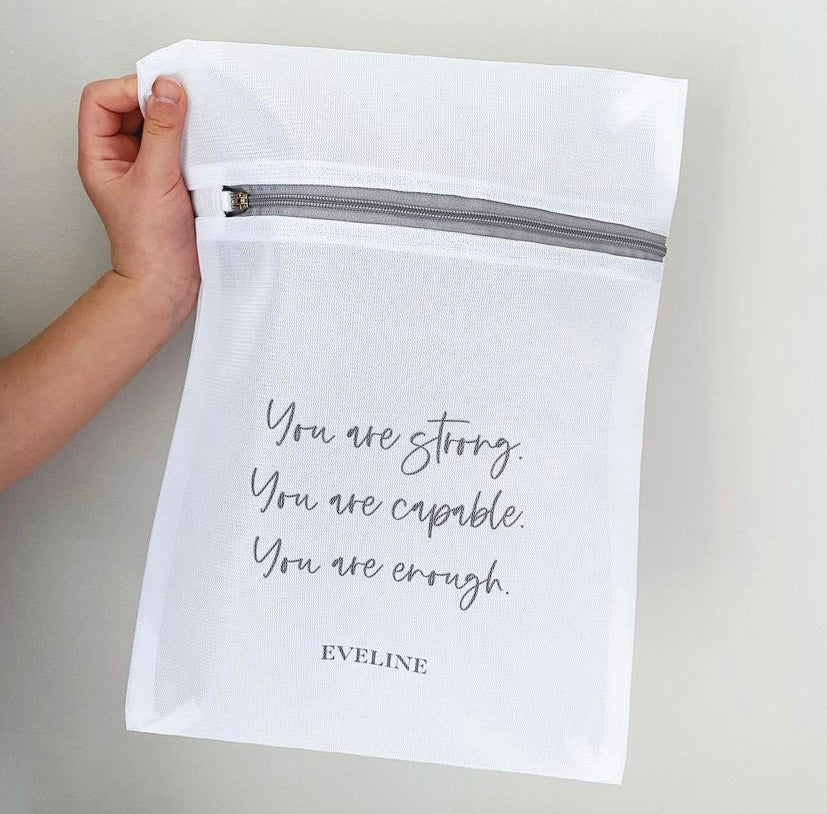 You are strong.
You are capable.
You are enough.
EVELINE